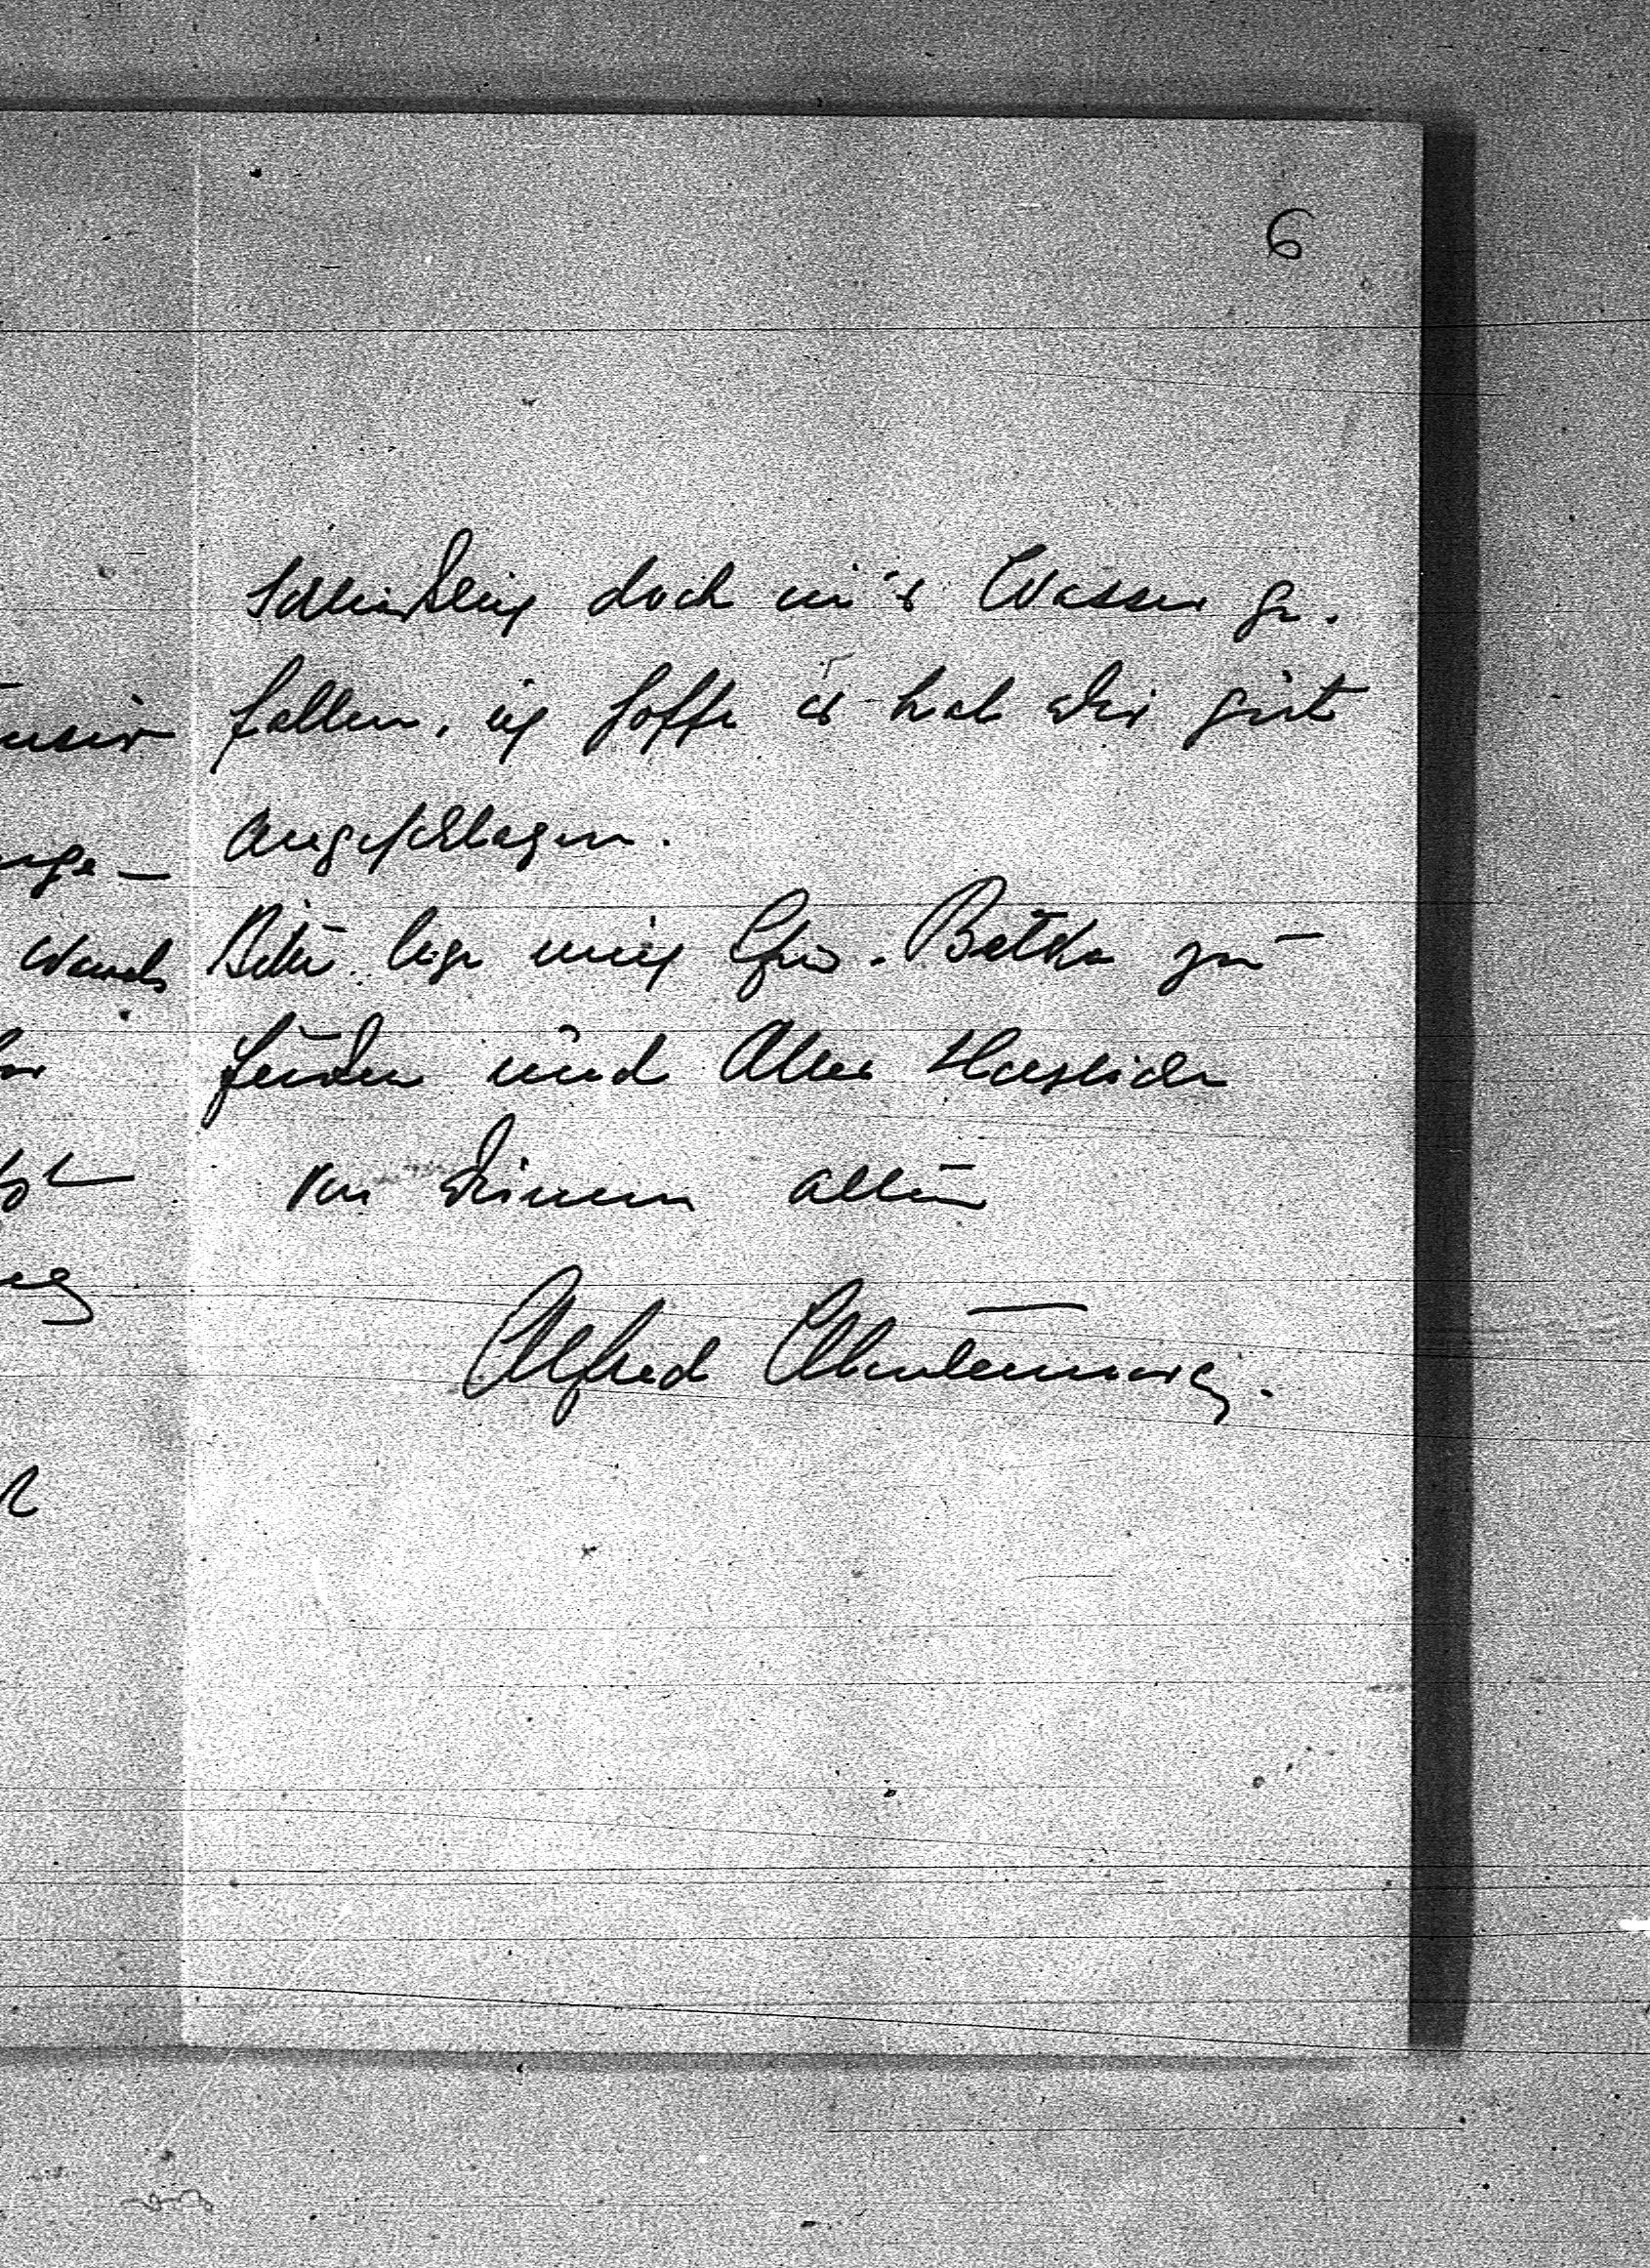 6
schließlich doch in's Wasser ge-
fallen, ich hoffe es hat Dir gut
angeschlagen.
Bitte lege mich Gfin. Betka zu
Füßen und Alles Herzliche
von Deinem alten
Alfred
wurde